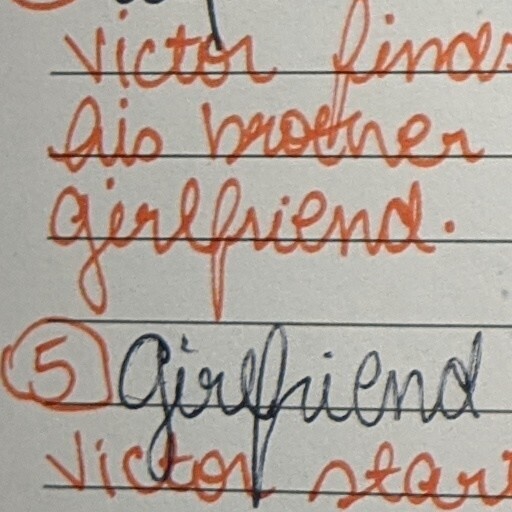 Victor finds
his brother
girlfriend.
5 Girlfriend
Victor star